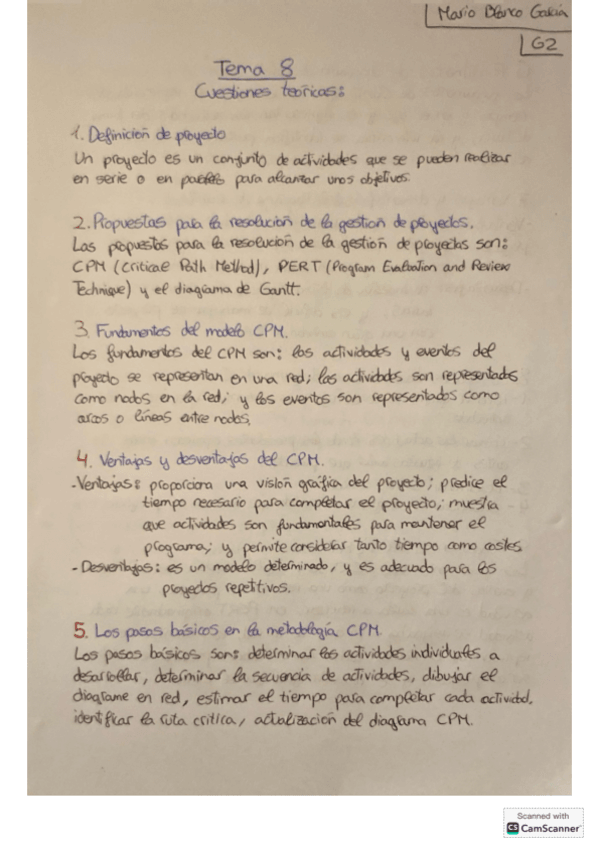 Mario Blanco García
G2
Tema 8
Cuestiones teóricas:
1. Definición de proyecto
Un proyecto es un conjunto de actividades que se pueden realizar
en serie o en paralelo para alcanzar unos objetivos.
2. Propuestas para la resolución de la gestión de proyectos.
Las propuestas para la resolución de la gestión de proyectos son:
CPM (Critical Path Method), PERT (Program Evaluation and Review
Technique) y el diagrama de Gantt.
3. Fundamentos del modelo CPM.
Los fundamentos del CPM son: las actividades y eventos del
proyecto se representan en una red; las actividades son representadas
como nodos en la red; y los eventos son representados como
arcos o líneas entre nodos.
4. Ventajas y desventajas del CPM.
-Ventajas: proporciona una visión gráfica del proyecto; predice el
tiempo necesario para completar el proyecto; muestra
que actividades son fundamentales para mantener el
programa; y permite considerar tanto tiempo como costes
- Desventajas: es un modelo determinado, y es adecuado para los
proyectos repetitivos.
5. Los pasos básicos en la metodología CPM.
Los pasos básicos son: determinar las actividades individuales a
desarrollar, determinar la secuencia de actividades, dibujar el
diagrama en red, estimar el tiempo para completar cada actividad,
identificar la ruta crítica, actualización del diagrama CPM.
Scanned with
CS CamScanner